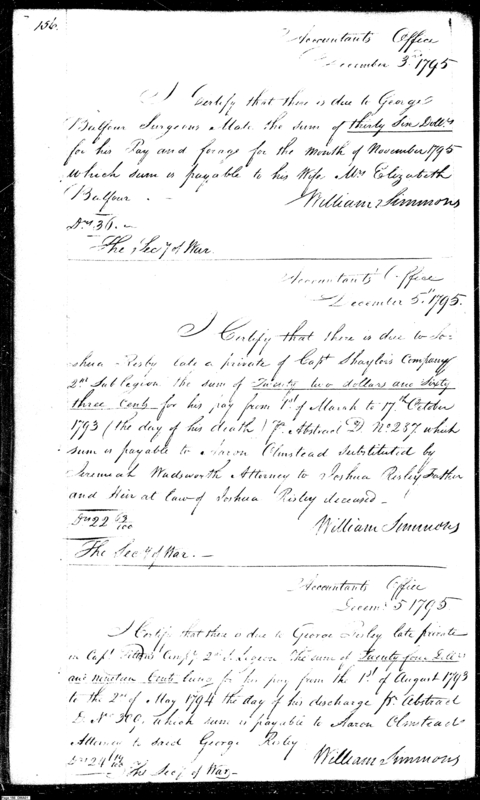 156.
Accountants Office
December 3d 1795
I Certify that there is due to George
Balfour Surgeons Mate the sum of thirty Six Dolls
for his Pay and forage for the month of November 1795
which sum is payable to his Wife Mrs Elizabeth
Balfour.
William Simmons
Drs 36.
The Secy of War.
Accountants Office
December 5th 1795.
I Certify that there is due to Jo-
shua Risley late a private of Capt Shaylors Company
2nd Sub Legion the sum of Twenty two dollars and Sixty
three Cents for his pay from 1st of March to 17th October
1793 (the day of his death) Pr Abstract D No 237 which
sum is payable to Aaron Olmstead Substituted by
Jeremiah Wadsworth Attorney to Joshua Risley Father
and Heir at law of Joshua Risley deceased
Drs 22 63/100
William Simmons
The Secy of War.
Accountants Office
Decemr 5 1795.
I Certify that there is due to George Risley late private
in Capt Compy 2nd S. Legion The sum of Twenty four Dolls
and nineteen Cents being for his pay from the 1st of August 1793
to the 2nd of May 1794 the day of his discharge pr Abstract
D. No 300, which sum is payable to Aaron Olmstead
Attorney to said George Risley
Drs 24 19/100
William Simmons
The Secy of War